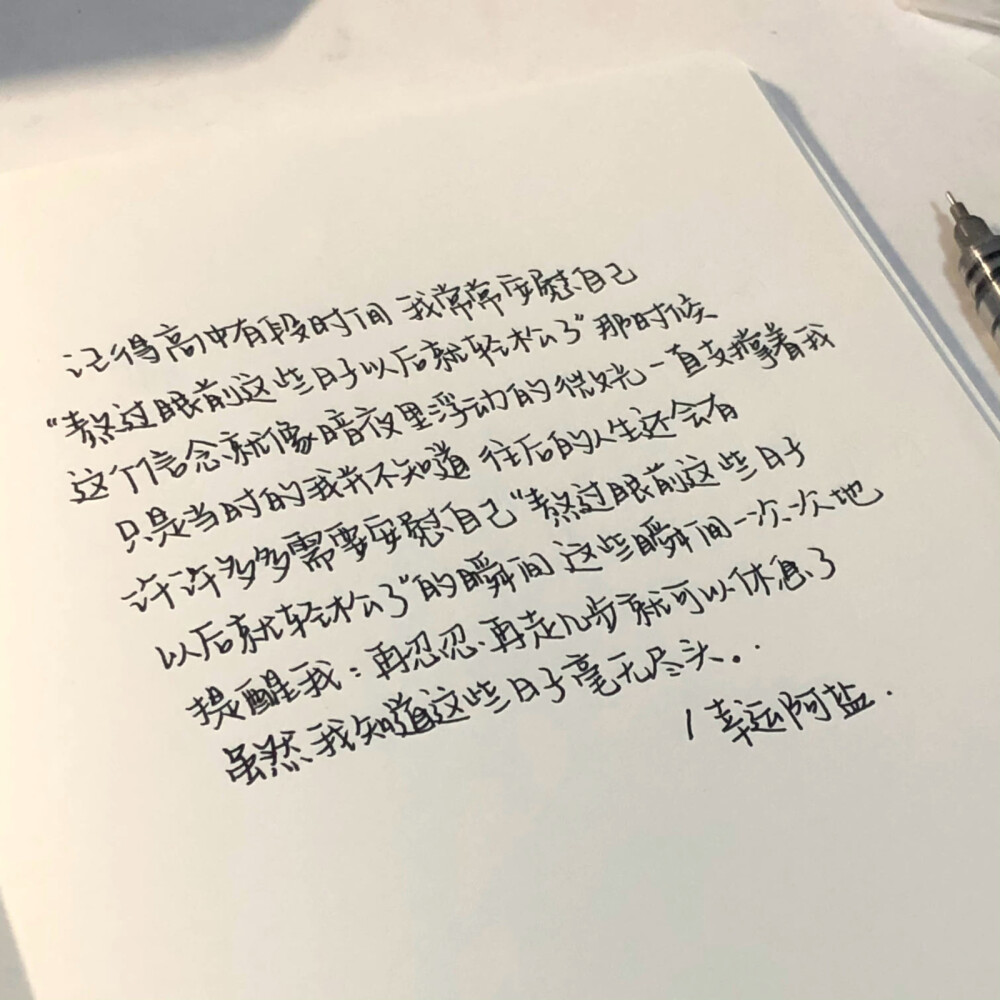 记得高中有段时间 我常常安慰自己
“熬过眼前这些日子以后就轻松了”那时候
这个信念就像暗夜里浮动的微光一直支撑着我
只是当时的我并不知道 往后的人生还会有
许许多多需要安慰自己“熬过眼前这些日子
以后就轻松了”的瞬间 这些瞬间一次次地
提醒我：再忍忍.再走几步就可以休息了
虽然我知道这些日子毫无尽头..
/幸运阿盐.